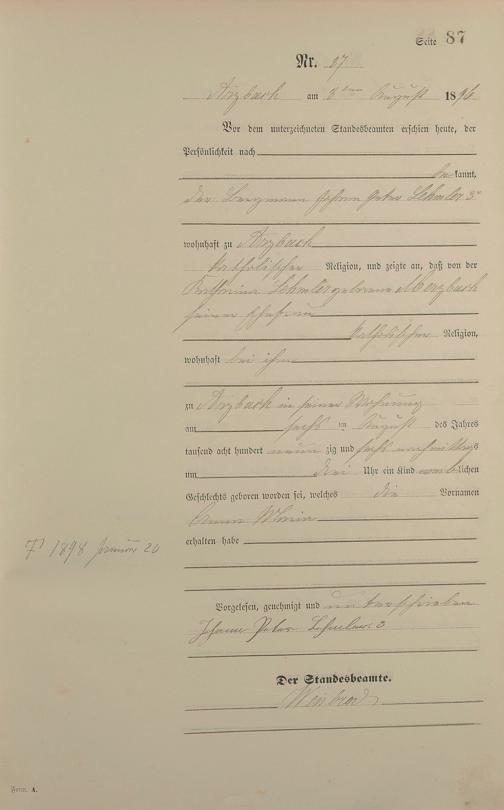 Seite 87
Nr. 87
Arzbach am 8ten August 1896
Vor dem unterzeichneten Standesbeamten erschien heute, der
Persönlichkeit nach
bekannt,
der Bergmann Johann Peter Lehmler 3r
wohnhaft zu Arzbach
katholischer Religion, und zeigte an, daß von der
Katharina Lehmler geborene Merzbach
seiner Ehefrau
katholischer Religion,
wohnhaft bei ihm
zu Arzbach in seiner Wohnung
am sechs ten August des Jahres
tausend acht hundert neun zig und sechs nachmittags
um drei Uhr ein Kind weiblichen
Geschlechts geboren worden sei, welches die Vornamen
Anna Maria
erhalten habe
1898 Januar 20
Vorgelesen, genehmigt und unterschrieben
Johann Peter Lehmler 3
Der Standesbeamte.
Weisbrod
Form. A.